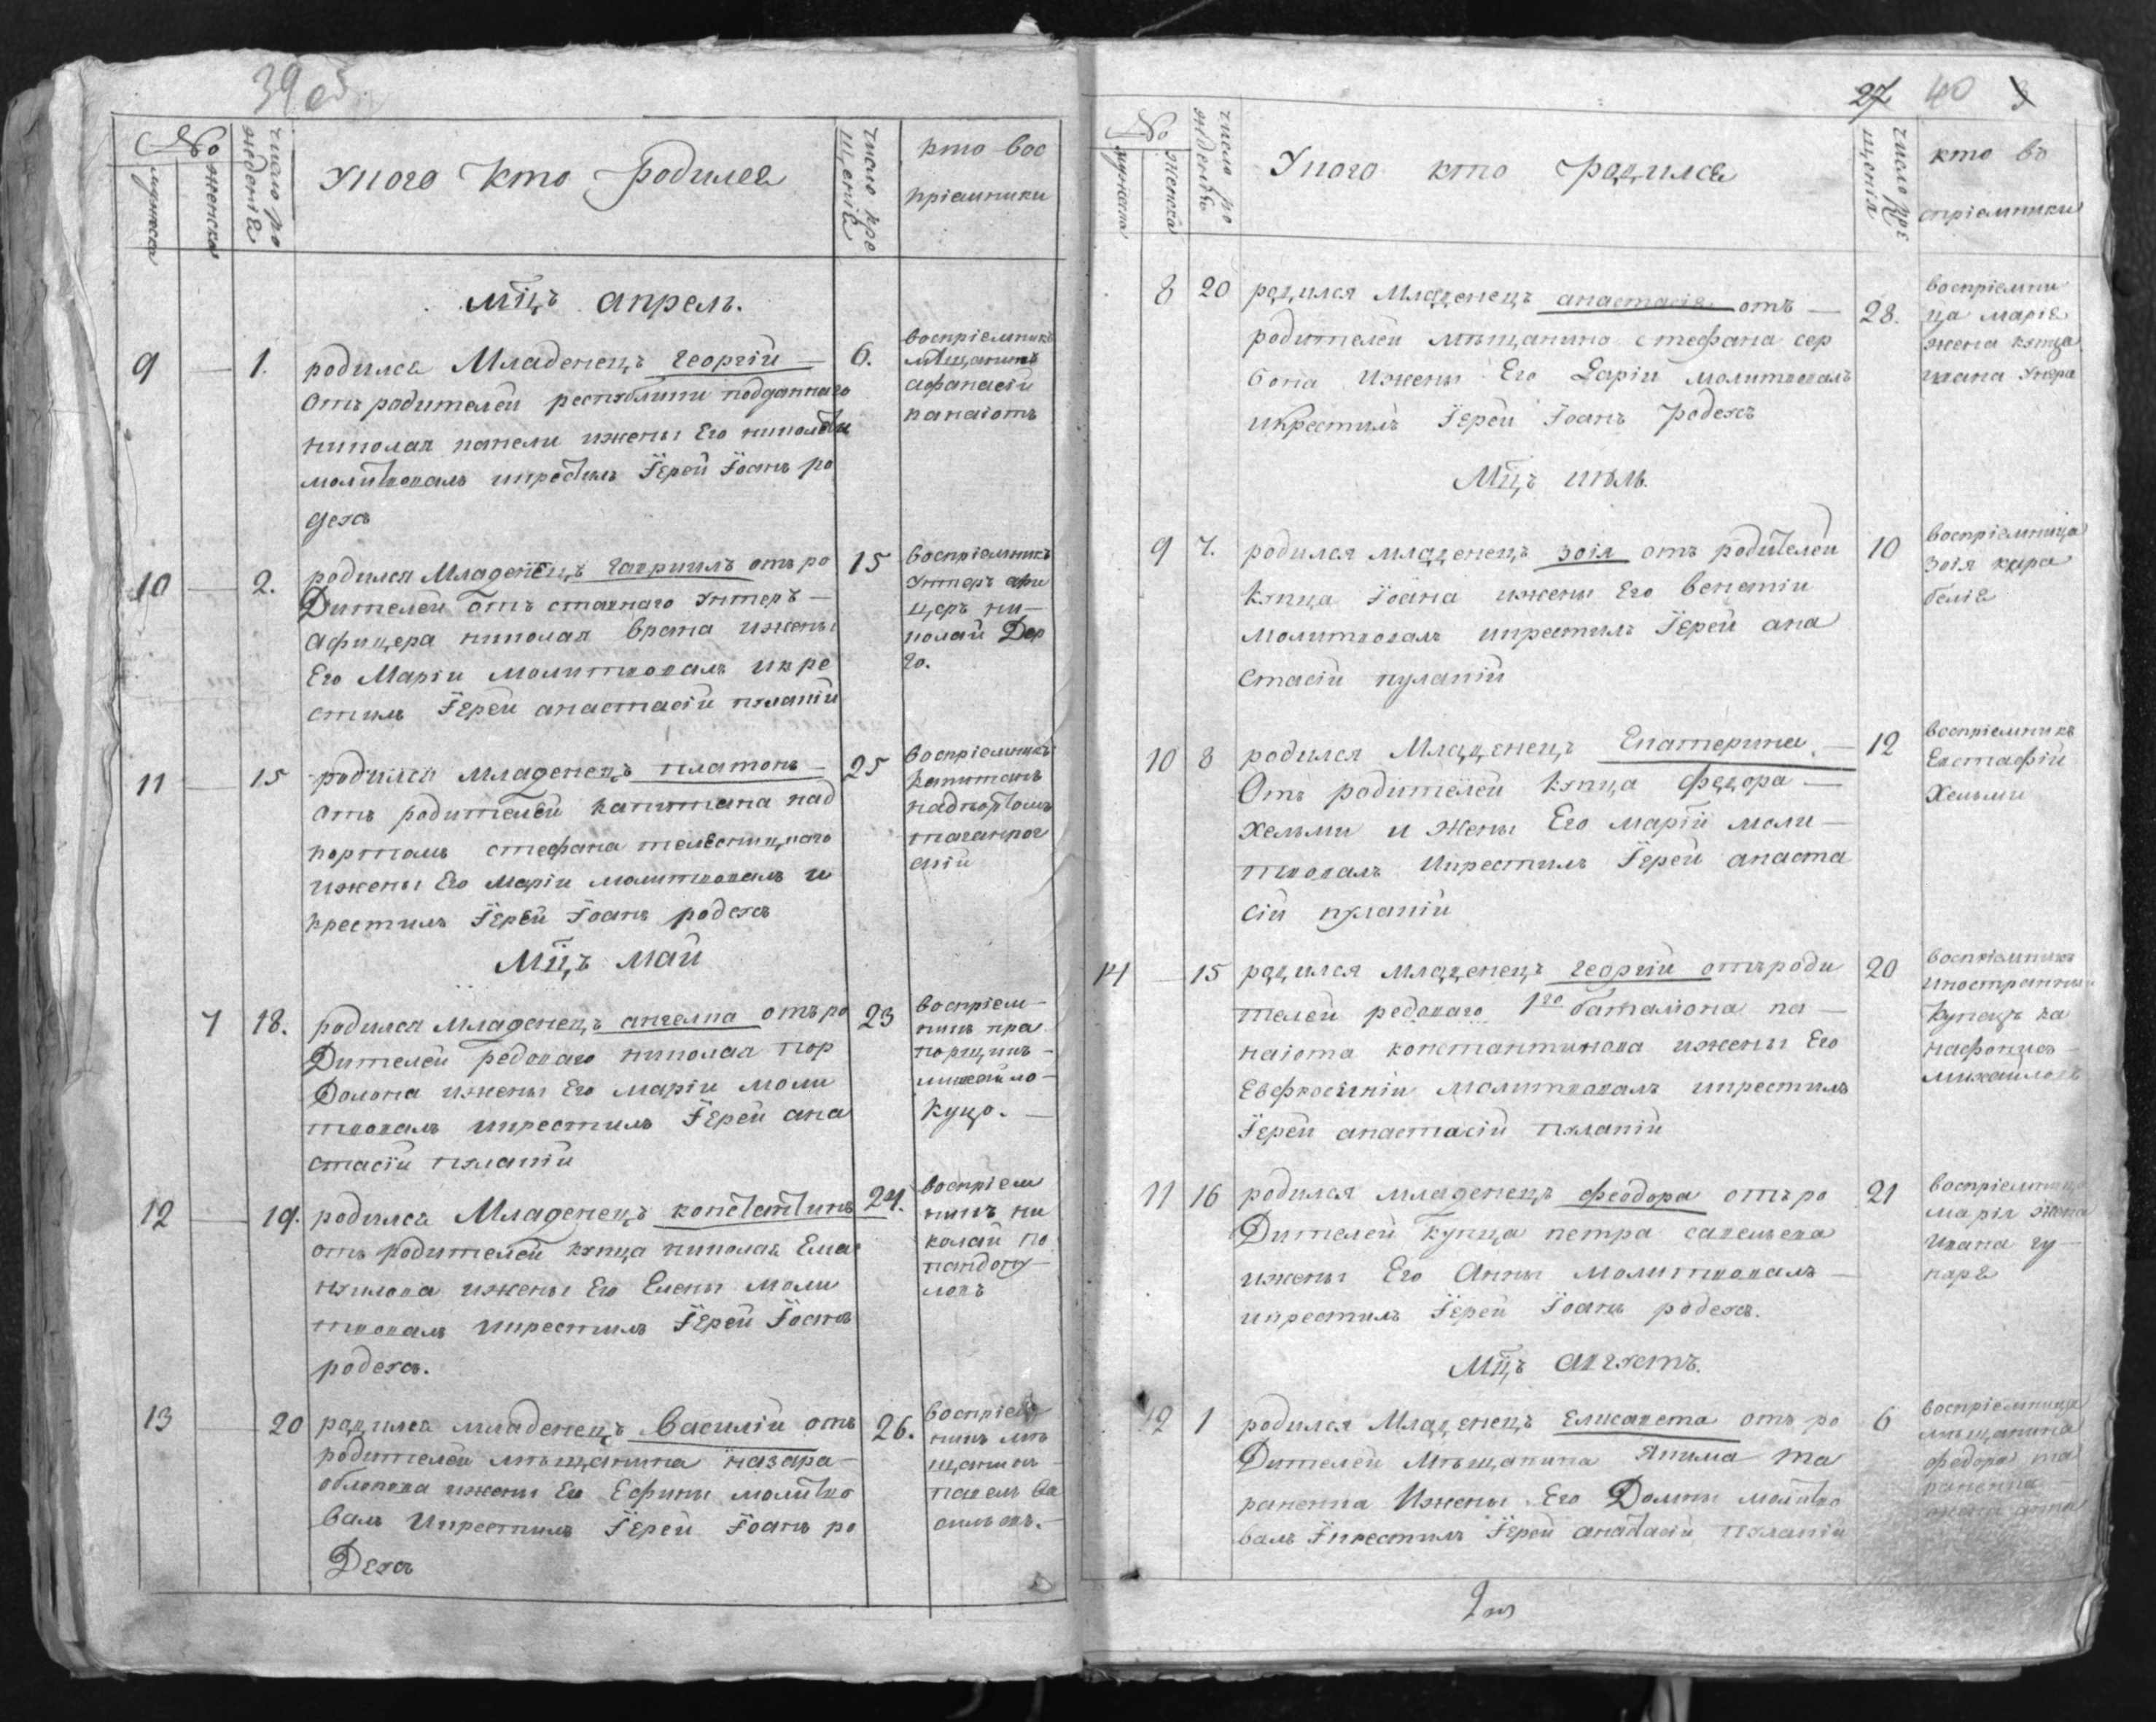 39 об
№
мужеска
женска
число ро
жденія
Уного Кто Родился
число кре
щенія
кто вос
пріемники
Мцъ апрель.
9 — 1. родился Младенецъ георгій — 6.
отъ родителей республики подданнаго
николая пателли ижены Его николеты
молитвовалъ икрестилъ Іерей Іоанъ ро
дехъ
воспріемникъ
мѣщанинъ
афанасій
панаіотъ
10 — 2. родился Младенецъ гавриилъ отъ ро 15
Дителей отъ ставнаго Унтеръ —
афицера николая врата ижены
Его Маріи молитвовалъ икре
стилъ Іерей анастасій пуланій
воспріемникъ
Унтеръ афи
церъ ни—
колай Дер
го.
11 — 15 родился Младенецъ платонъ — 25
отъ родителей капитана над
портомъ стефана
ижены Его Маріи молитвовалъ и
крестилъ Іерей Іоанъ родехъ
воспріемникъ
Капитанъ
надпортомъ
таганрог
скій
Мцъ Май
7 18. родился Младенецъ ангелина отъ ро 23
Дителей редоваго николая пор
Долона ижены Его Маріи моли
твовалъ икрестилъ Іерей ана
стасій пуланій
воспріем—
никъ пра
порщикъ —
михайло —
Куцо. —
12 — 19. родился Младенецъ константинъ 24.
отъ родителей купца николая Ема
нуилова ижены Его Елены моли
твовалъ икрестилъ Іерей Іоанъ
родехъ.
воспріем
никъ ни
колай по
пандопу—
ловъ
13 — 20 родился младенецъ Василій отъ 26.
родителей мѣщанина назара —
облокова ижены Его Ефимы молитво
валъ Икрестилъ Іерей Іоанъ ро
Дехъ
воспріем
никъ мѣ
щанинъ
павелъ Ва
сильевъ. —
27 40 3
№
мужеска
женска
число ро
жденія
Уного кто Родился
число кре
щенія
кто во
спріемники
8 20 родился Младенецъ анастасія отъ — 28.
родителей мѣщанина стефана сер
бона Ижены Его Даріи молитвовалъ
икрестилъ Іерей Іоанъ Родехъ
воспріемни
ца марія
жена купца
ивана
Мцъ июль.
9 7. родился младенецъ зоія отъ родителей 10
Купца Іоана ижены Его венетіи
Молитвовалъ икрестилъ Іерей ана
стасій пуланій
воспріемница
зоія кара
белія
10 8 родился Младенецъ Екатерина. — 12
Отъ родителей купца Федора —
хельми и Жены Его Маріи моли —
твовалъ Икрестилъ Іерей анаста
сій пуланій
воспріемникъ
Евстафій
Хельми
14 — 15 родился младенецъ георгій отъ роди 20
телей редоваго 1го баталіона па —
наіота константинова ижены Его
Евфросиніи молитвовалъ икрестилъ
Іерей анастасій пуланій
воспріемникъ
иностранны
Купецъ ка
михайловъ
11 16 родился младенецъ феодора отъ ро 21
Дителей Купца петра савельева
ижены Его Анны молитвовалъ —
икрестилъ Іерей Іоанъ родехъ.
воспріемница
марія жена
Ивана гу—
наря
Мцъ августъ.
12 1 родился Младенецъ Елисавета отъ ро 6
Дителей Мѣщанина Якима та
раненка Ижены Его Домны молитво
валъ Икрестилъ Іерей анастасій пуланій
воспріемница
мѣщанина
федора та
раненка
жена анна